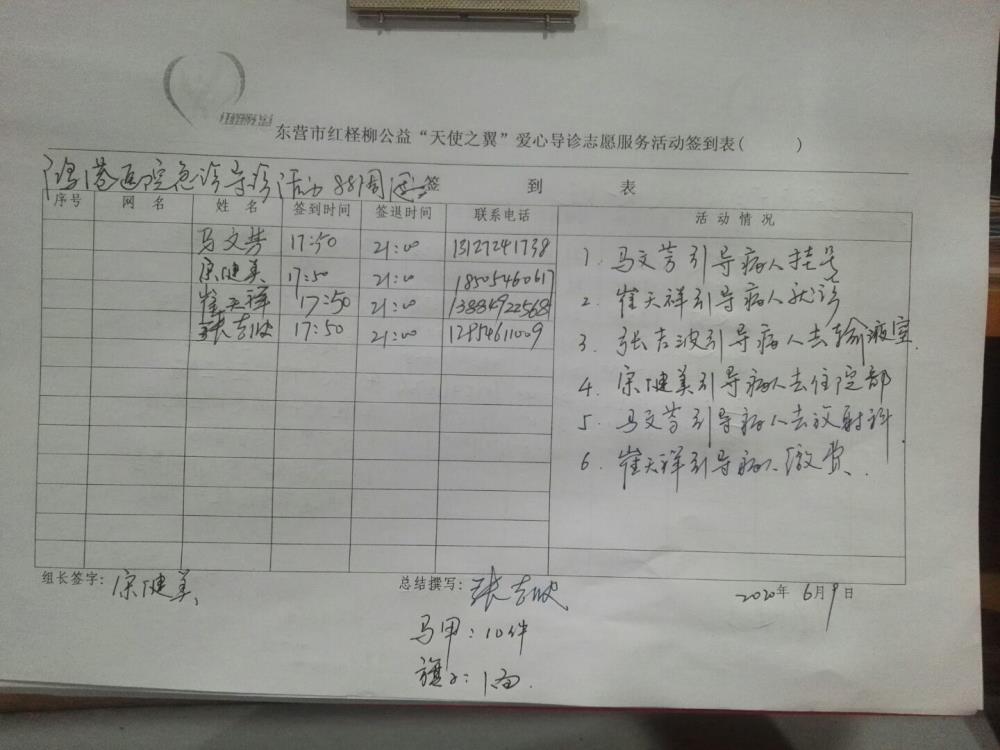 东营市红柽柳公益“天使之翼”爱心导诊志愿服务活动签到表( )
鸿港医院急诊导诊活动 88周 签 到 表
序号 网 名 姓 名 签到时间 签退时间 联系电话 活 动 情 况
马文芳 17:50 21:00 13127241738
宋健美 17:50 21:00 18505460617
崔天祥 17:50 21:00 13884922568
张志波 17:50 21:00 12954611009
1. 马文芳引导病人挂号
2. 崔天祥引导病人就诊
3. 张志波引导病人去输液室.
4. 宋健美引导病人去住院部
5. 马文芳引导病人去放射科.
6. 崔天祥引导病人缴费.
组长签字: 宋健美 总结撰写: 张志波 2020年 6月9日
马甲: 10件
旗子: 1面.